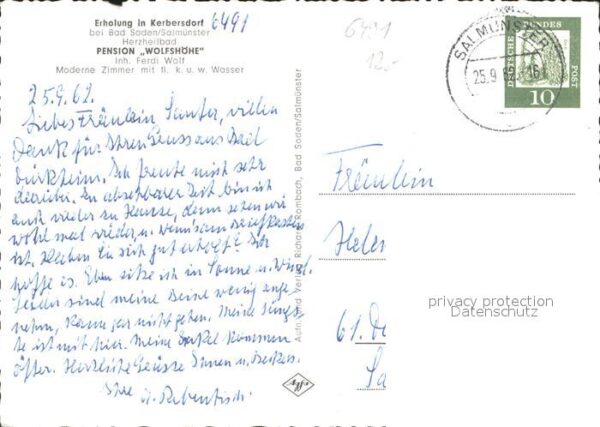 Erholung in Kerbersdorf
bei Bad Soden/Salmünster
Herzheilbad
PENSION „WOLFSHÖHE"
Inh. Ferdi Wolf
Moderne Zimmer mit fl. k. u. w. Wasser
6491
6491
12.-
SALMÜNSTER
25.9.
16
DEUTSCHE BUNDESPOST
10
25.9.62.
Liebes Fräulein vielen
Dank für Ihren Gruss aus Bad
Dürkheim. Ich freute mich sehr
darüber. In absehbarer Zeit bin ich
auch wieder zu Hause, dann sehen wir
wohl mal wieder u.
ist. Haben Sie sich gut erholt? Ich
hoffe es. Eben sitze ich in Sonne u. Wind.
Leider sind meine Beine wenig ange-
nehm, kann gar nicht gehen. Meine Jüngs-
te ist mit hier. Meine Enkel kommen
öfter. Herzliche Grüsse Ihnen u.
Ihre
Aufn. und Verlag Richard Rombach, Bad Soden/Salmünster
Agfa
Fräulein
Helen
61.
Sa
privacy protection
Datenschutz